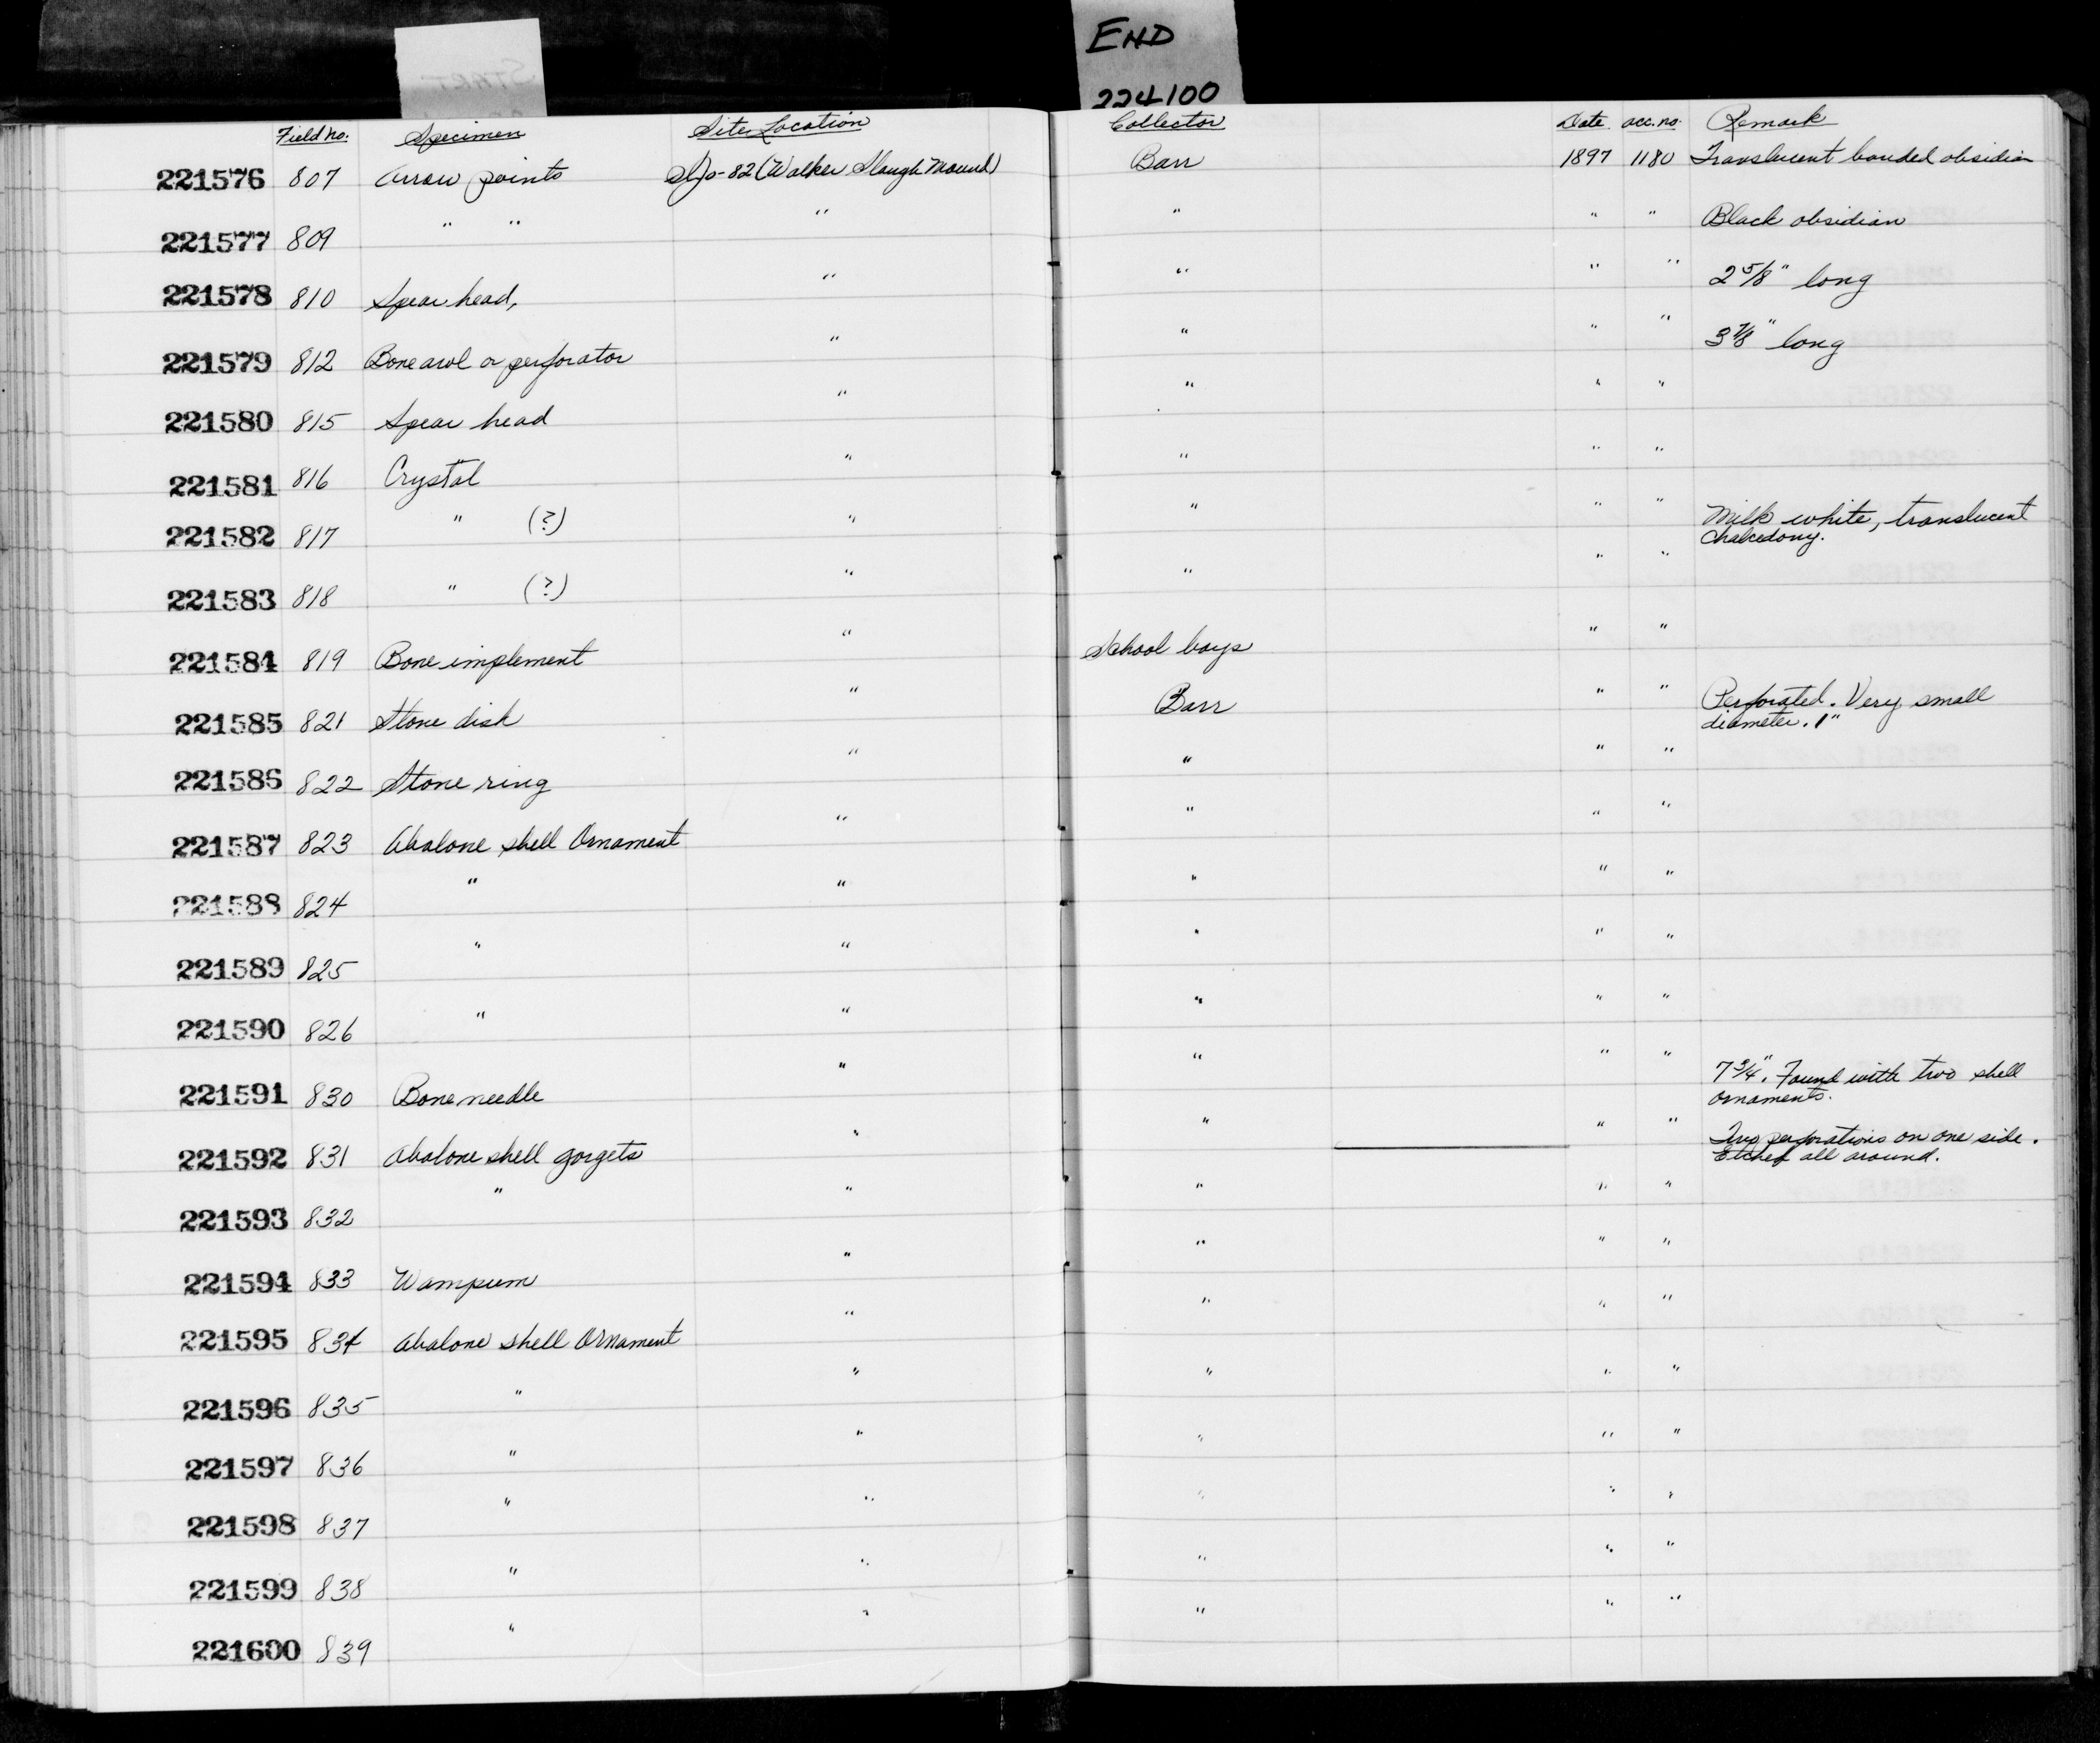 END
224100
START
Field no. Specimen Site Location Collector Date acc. no. Remark
221576 807 Arrow points SJo-82 (Walker Slough Mound) Barr 1897 1180 Translucent banded obsidian
221577 809 " " " " " " Black obsidian
221578 810 Spear head, " " " " 2 5/8" long
221579 812 Bone awl or perforator " " " " 3 7/8" long
221580 815 Spear head " " " "
221581 816 Crystal " " " "
221582 817 " (?) " " " " Milk white, translucent
chalcedony.
221583 818 " (?) " " " "
221584 819 Bone implement " School boys " "
221585 821 Stone disk " Barr " " Perforated. Very small
diameter. 1"
221586 822 Stone ring " " " "
221587 823 Abalone shell Ornament " " " "
221588 824 " " " " "
221589 825 " " " " "
221590 826 " " " " "
221591 830 Bone needle " " " " 7 3/4". Found with two shell
ornaments.
221592 831 Abalone shell gorgets " " " " Two perforations on one side.
Etched all around.
221593 832 " " " " "
221594 833 Wampum " " " "
221595 834 Abalone shell Ornament " " " "
221596 835 " " " " "
221597 836 " " " " "
221598 837 " " " " "
221599 838 " " " " "
221600 839 " " " " "